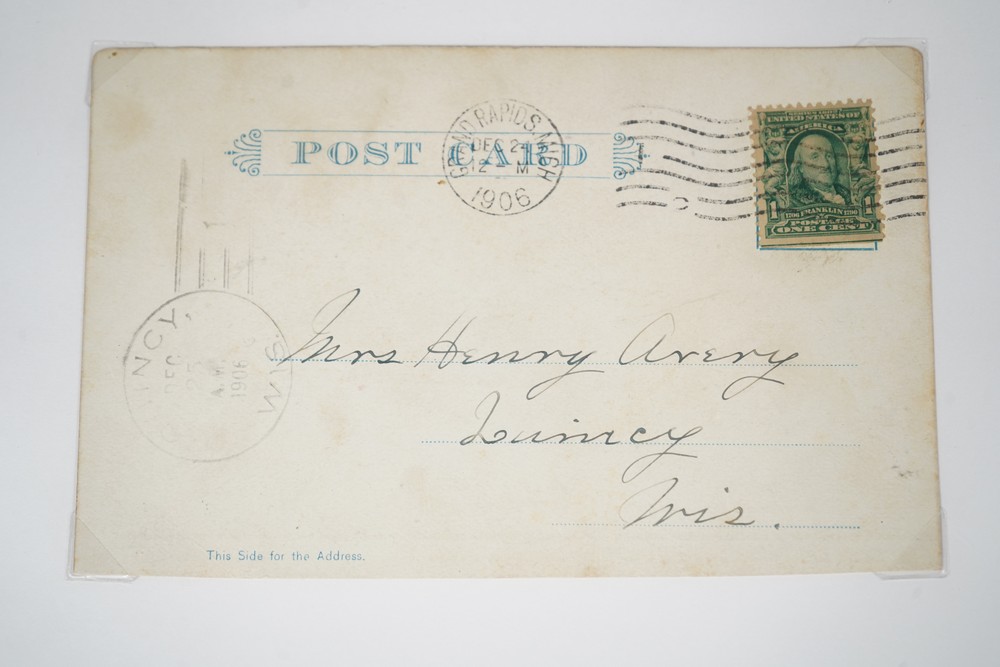 POST CARD
GRAND RAPIDS, MICH
DEC 24
12 M
1906
UNITED STATES OF
AMERICA
1 1706 FRANKLIN 1790 1
POSTAGE
ONE CENT
QUINCY, WIS.
DEC
A.M.
1906
Mrs Henry Avery
Quincy
Wis.
This Side for the Address.